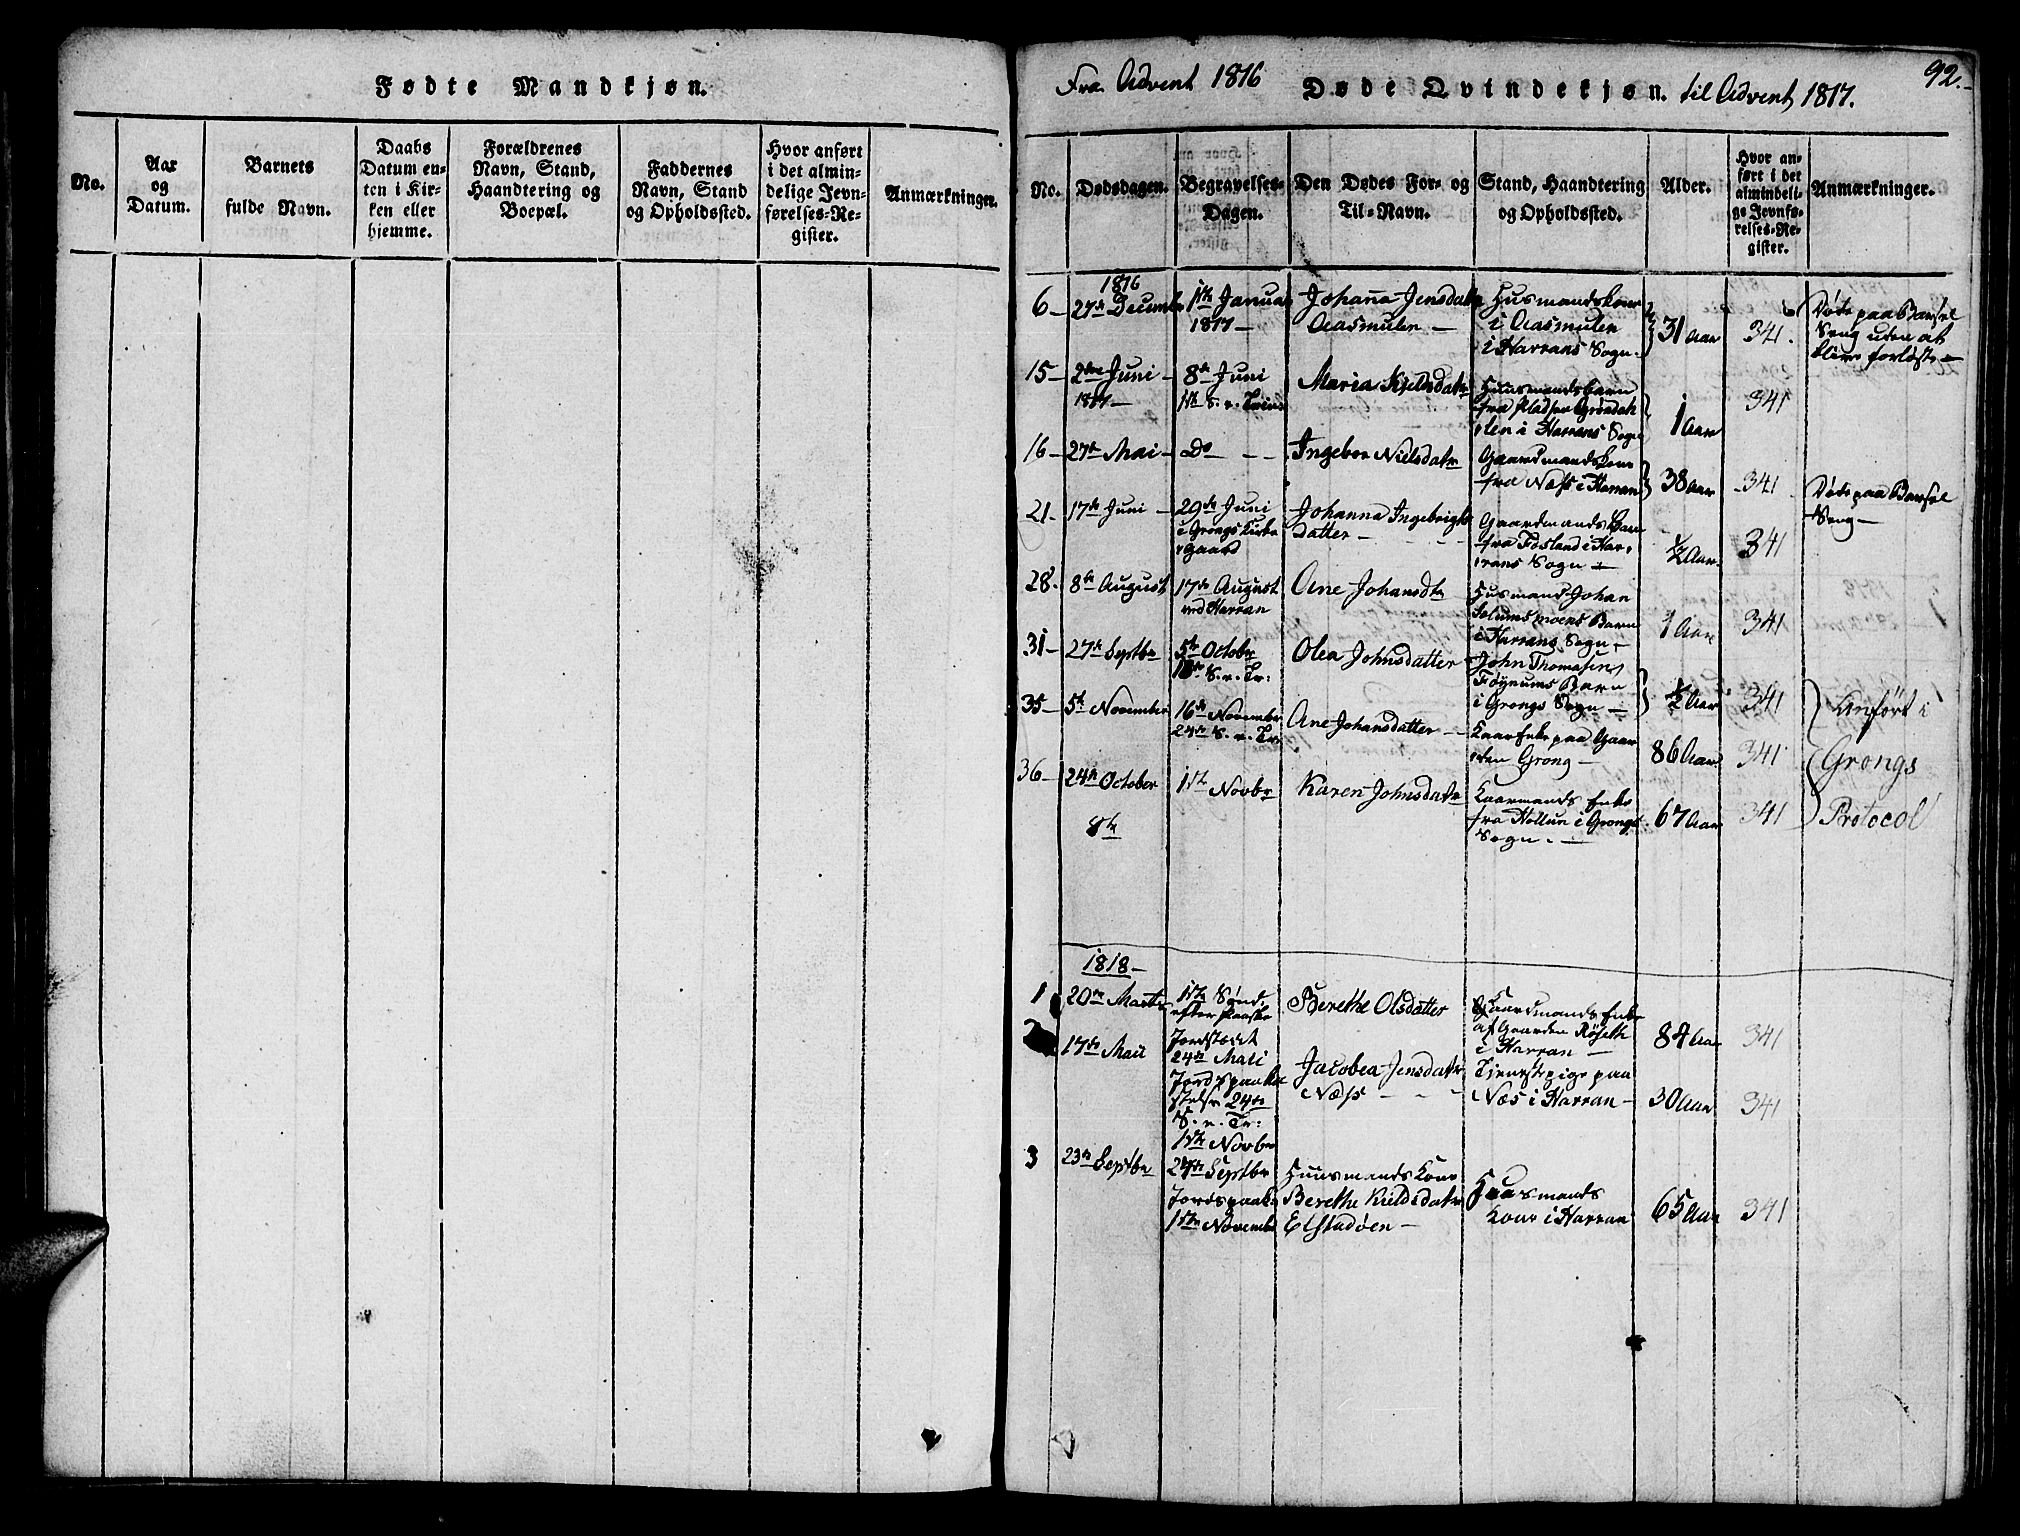 Fødte Mandkjøn.
No.
Aar
og
Datum.
Barnets
fulde Navn.
Daabs
Datum en-
ten i Kir-
ken eller
hjemme.
Forældrenes
Navn, Stand,
Haandtering og
Boepæl.
Faddernes
Navn, Stand
og Opholdssted.
Hvor anført
i det almin-
delige Jevn-
førelses-Re-
gister.
Anmærkninger.
Fra Advent 1816 Døde Qvindekjøn. til Advent 1817.
92.
No.
Dødsdagen.
Begravelses-
Dagen.
Den Dødes For- og
Til-Navn.
Stand, Haandtering
og Opholdssted.
Alder.
Hvor an-
ført i det
almindeli-
ge Jevnfø-
relses-Re-
gister.
Anmærkninger.
6
1816
27de December
1ste Januar
1817
Johanna Jensdatr
Aasmulen
Husmandskone
i Aasmulen
i Harrans Sogn
31 Aar
341.
Døde paa Barsel
Seng uden at
blive forløst
15
2den Juni
1817
8de Juni
1ste S. e. Trin
Maria Kieldsdatr
Huusmandsbarn
fra Pladsen Grøndal
i Harrans Sogn
1 Aar
341
16
27de Mai
Do
Ingebor Nielsdatr
Gaardmandskone
fra Næss i Harran
38 Aar
341
Døde paa Barsel
Seng
21
17de Juni
29de Juni
i Grongs Kirke
gaard
Johanna Ingebrigts
datter
Gaardmands Barn
fra Fosland i Har-
rans Sogn
½ Aar
341
28.
8de August
17de August
ved Harran
Ane Johansdtr
Husmand Johan
Solumsmoens Barn
i Harrans Sogn
1 Aar
341
31
27de Septbr
5te Octobr
18de S. e. Tr:
Olea Johnsdatter
John Thomasen
Føynums Barn
i Grongs Sogn
½ Aar
341
Anført i
35
5te November
16de November
24de S. e. Tr.
Ane Johansdatter
Kaarenke paa Gaar
den Grong
86 Aar
341
Grongs
36
24de October
1ste Novbr
Karen Johnsdatr
Kaarmands Enke
fra Hollun i Grongs
Sogn.
67 Aar
341
Protocol
8de
1818
1
20de Marts
1ste Sønd.
efter Paaske
Berethe Olsdatter
Gaardmands Enke
af Gaarden Røseth
i Harran
84 Aar
341
17de Mai
Jordfæstet
24de Mai
Jordspaaka
stelse 24de
S. e. Tr:
1ste Novbr
Jacobea Jensdatr
Næss
Tjenestepige paa
Næs i Harran
30 Aar
341
3
23de Septbr
27de Septbr
Jordspaak:
1ste November
Huusmands Kone
Berethe Kieldsdatr
Elstadøen
Huusmands
Kone i Harran
65 Aar
341